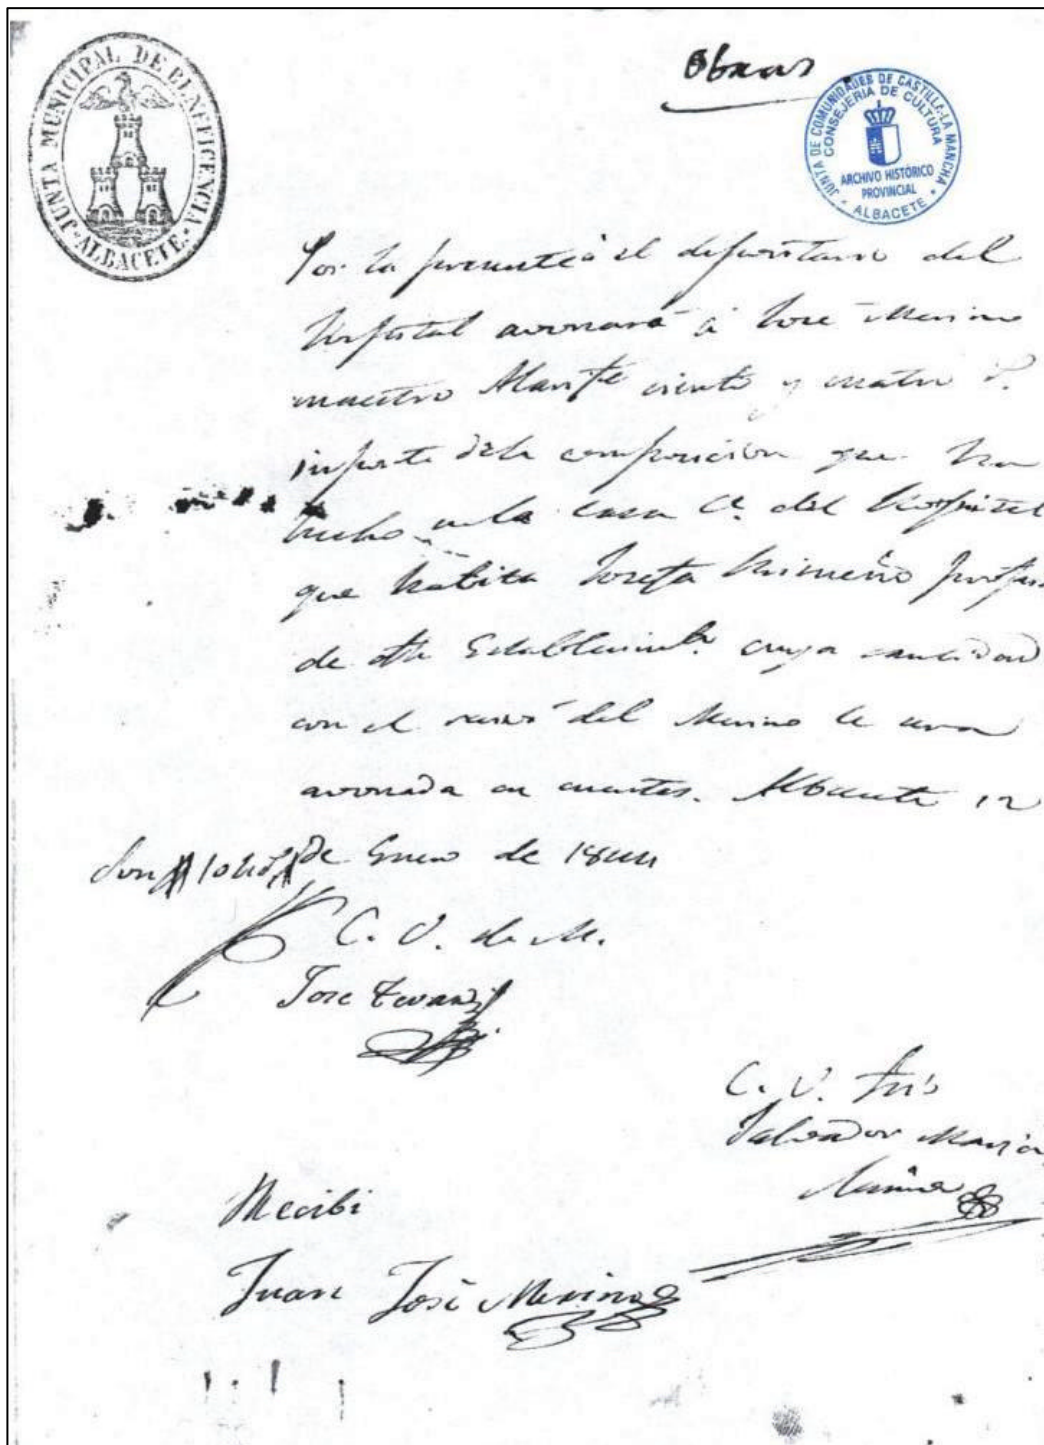 Obras
JUNTA MUNICIPAL DE BENEFICENCIA. ALBACETE.
JUNTA DE COMUNIDADES DE CASTILLA-LA MANCHA
CONSEJERIA DE CULTURA
ARCHIVO HISTÓRICO
PROVINCIAL
ALBACETE
Por la presente el depositario del
Hospital avonará á José Merino
maestro Alarife ciento y cuatro r.
importe dela composicion que ha
hecho en la casa del Hospital
que habita Josefa
de Establecimto. cuya cantidad
con el recivo del Merino le sera
avonada en cuentas. Albacete 12
de Enero de 1844
Son 104
C. V. de M.
Jose
C. V. Srio
Salvador Maria
Recibi
Juan José Merino